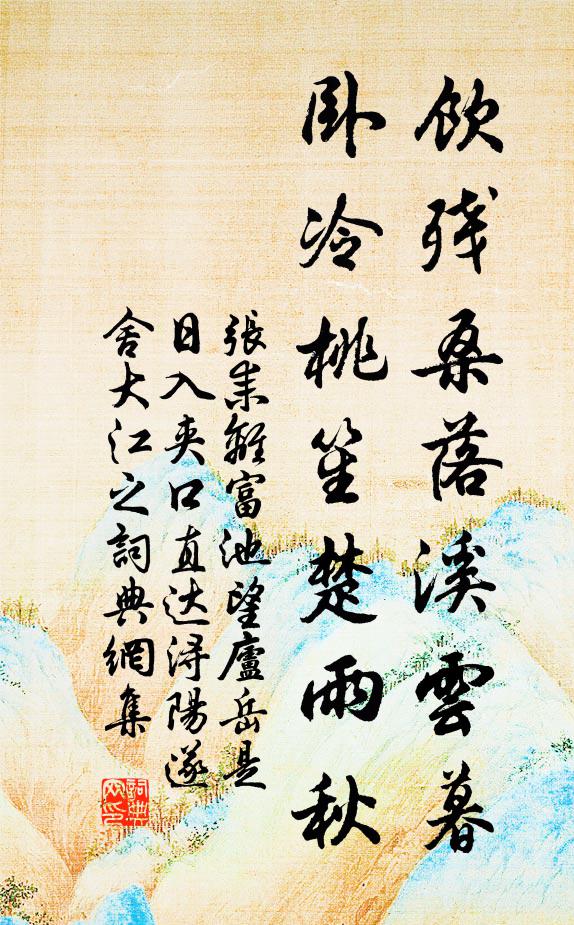 飲残桑落溪雲暮
卧冷桃笙楚雨秋
張耒離富池望廬岳是
日入夾口直达潯陽遂
舍大江之詞典網集